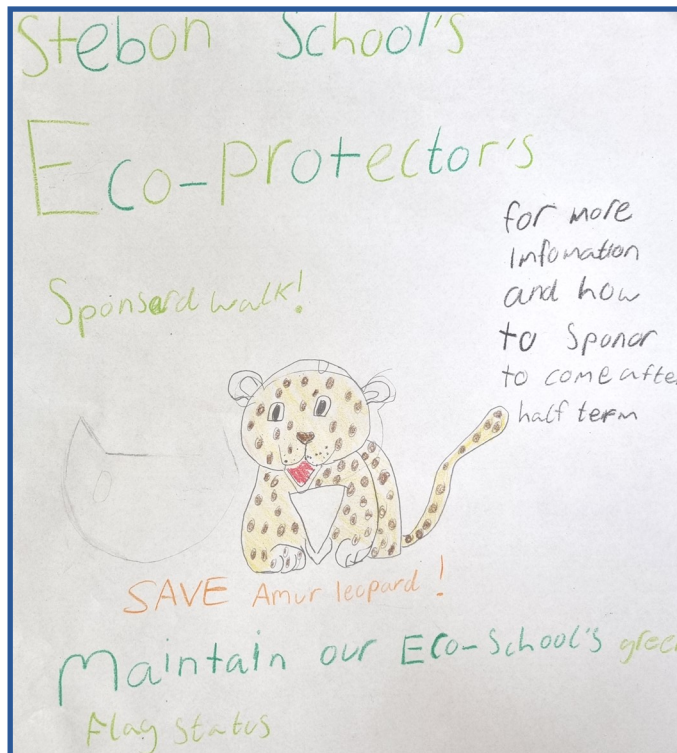 Stebon School's
Eco-protector's
for more
Infomation
and how
to Sponor
to come afte
half term
Sponserd walk!
SAVE Amur leopard!
Maintain our Eco-School's gree
flag status